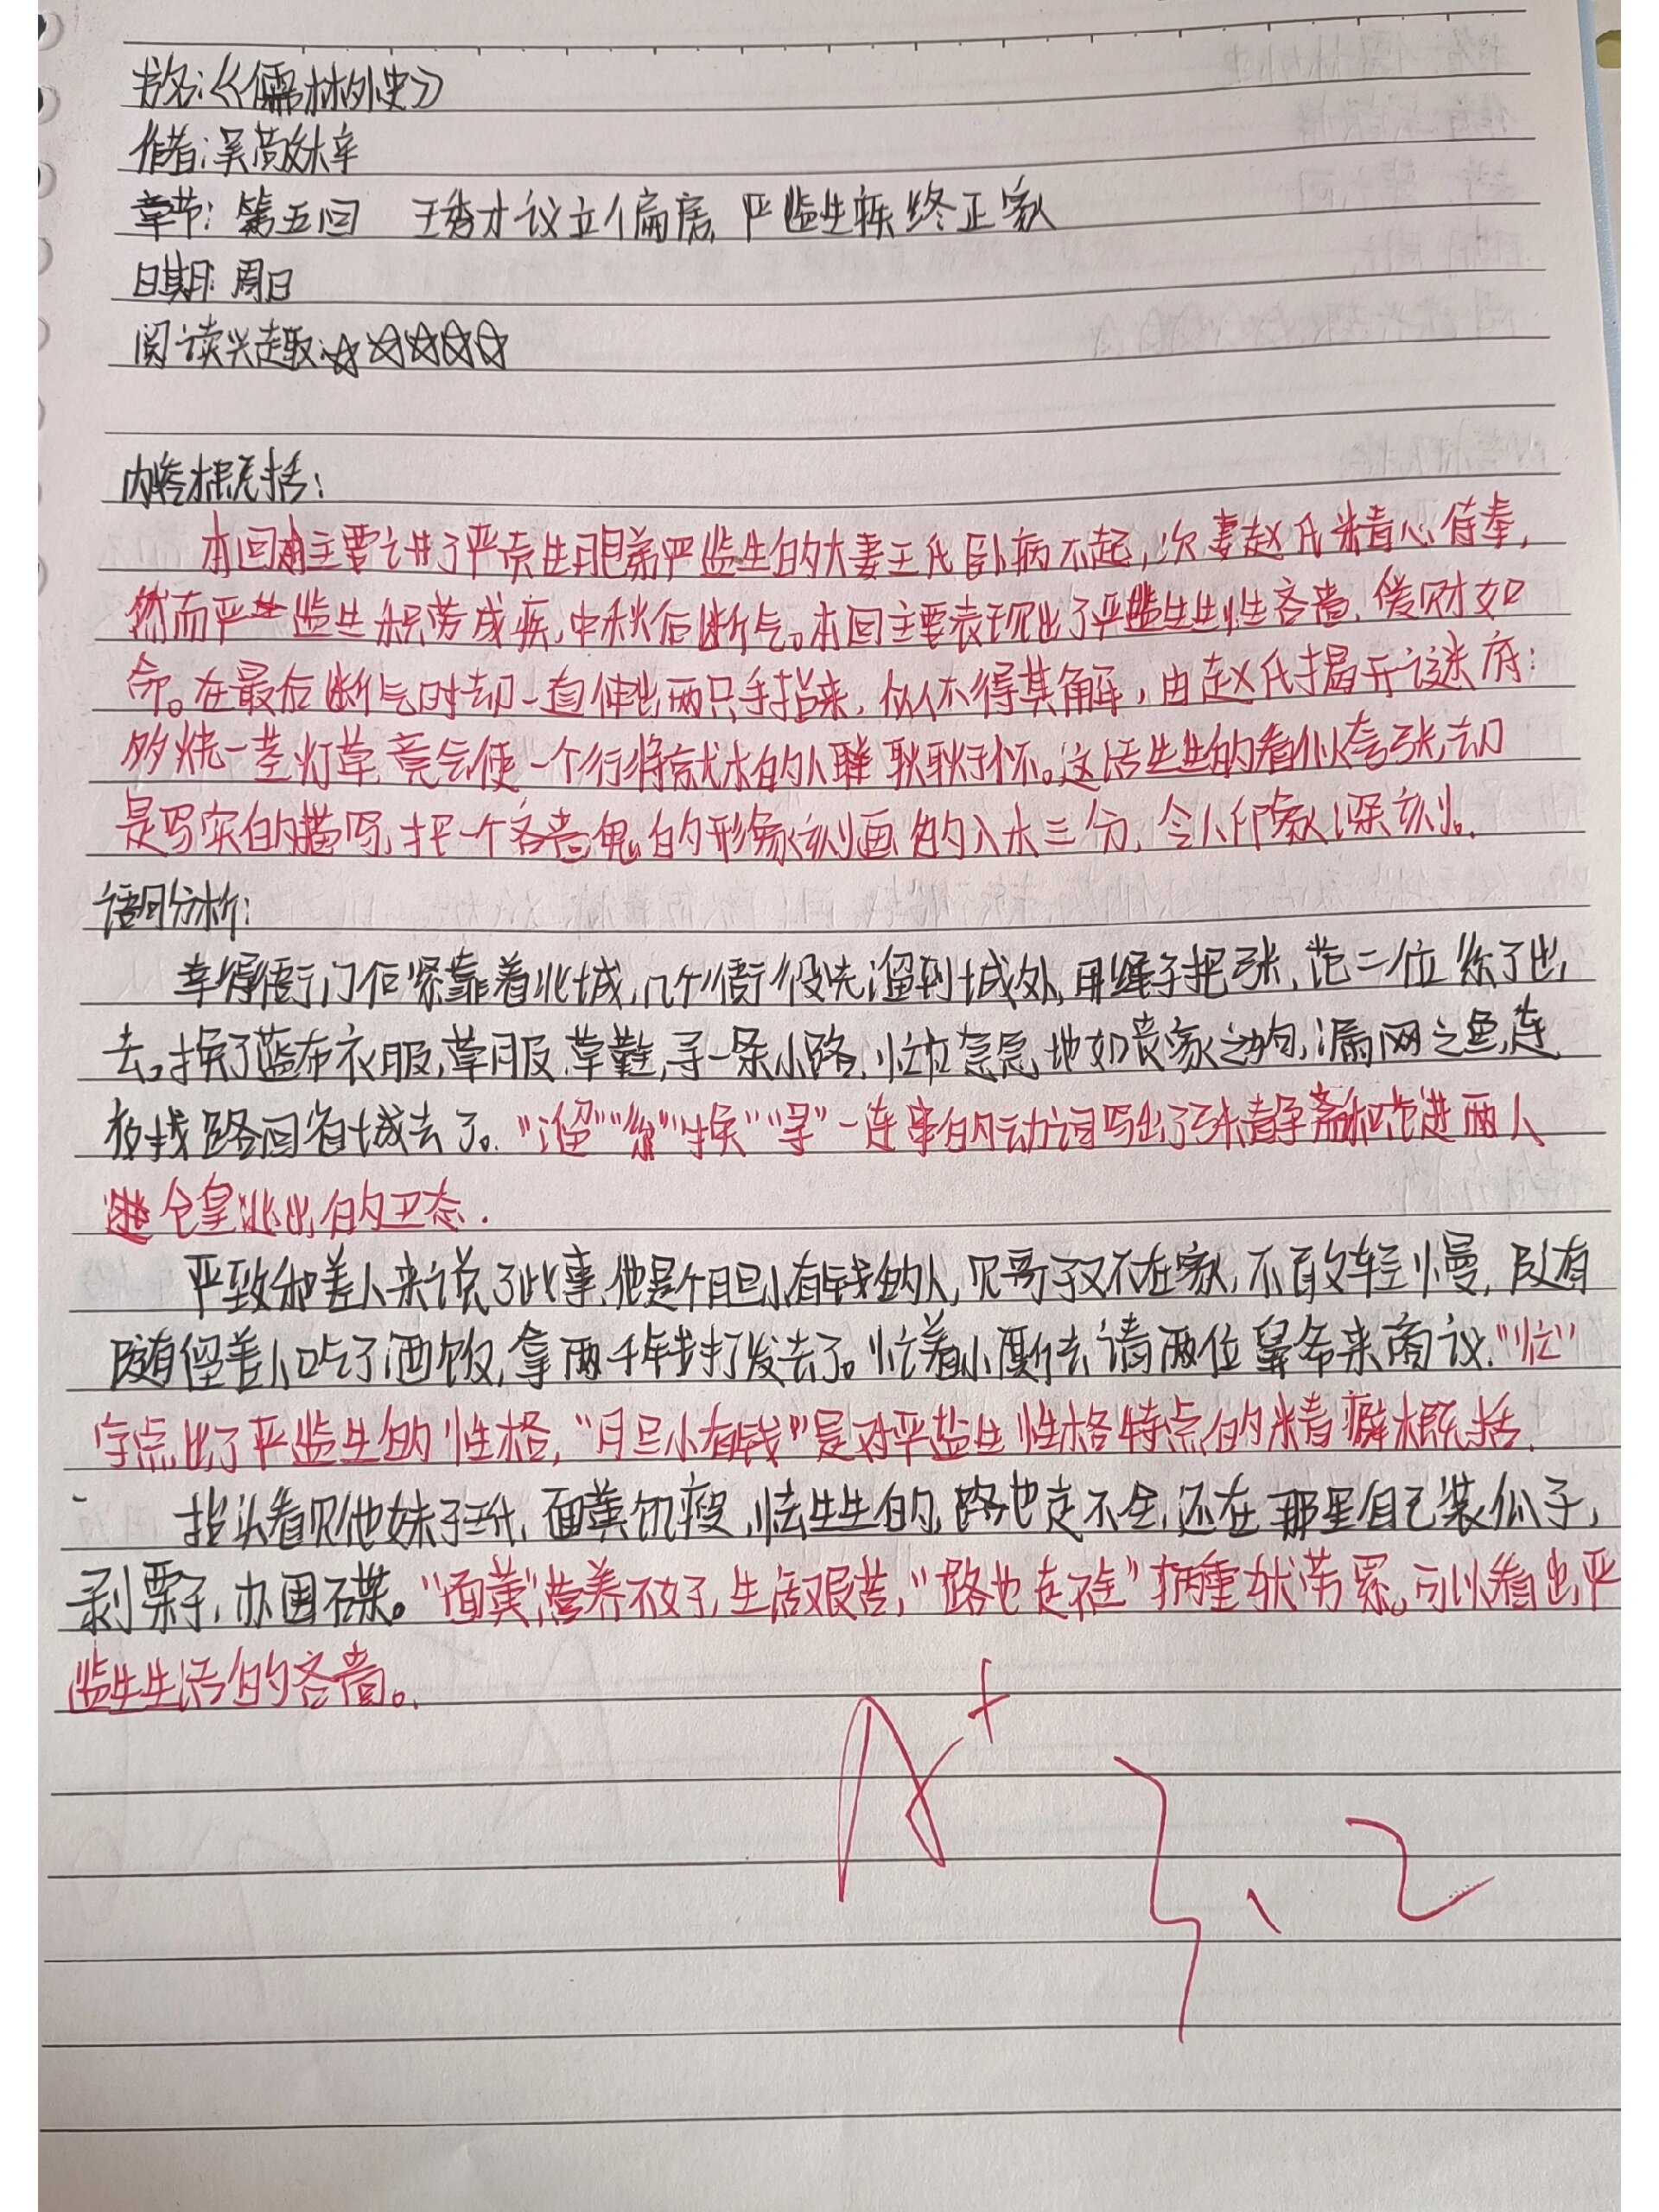 书名:《儒林外史》
作者:吴敬梓
章节: 第五回 王秀才议立偏房, 严监生疾终正寝
日期: 周日
阅读兴趣:☆☆☆☆☆
内容概括:
本回主要讲了严贡生胞弟严监生的大妻王氏卧病不起,次妻赵氏精心侍奉,
然而严监生积劳成疾,中秋后断气。本回主要表现出了严监生生性吝啬、爱财如
命。在最后断气时却一直伸出两只手指来, 似不得其解, 由赵氏揭开谜底:
多烧一茎灯草,竟会使一个行将就木的人耿耿于怀。这活生生的看似夸张,却
是写实的描写,把一个吝啬鬼的形象刻画的入木三分,令人印象深刻。
语句分析:
幸得衙门后紧靠着北城,几个衙役先溜到城外,用绳子把张、范二位系了出
去。换了蓝布衣服、草帽、草鞋,寻一条小路,忙忙急急地如丧家之狗,漏网之鱼,连
夜找路回省城去了。“溜”“系”“换”“寻”一连串的动词写出了张静斋和范进两人
仓皇逃出的
严致和差人来说了此事,他是个胆小有钱的人,见哥子又不在家,不敢轻慢,
随有留差人吃了酒饭,拿两千钱打发去了。忙着小厮去请两位舅爷来商议.“忙”
字点出了严监生的性格,“胆小有钱”是对严监生性格特点的精癖概括.
抬头看见他妹子王氏,面黄饥瘦,怯生生的,路也走不全,还在那里自己装瓜子,
剥栗子,办围碟。“面黄”,营养不好,生活艰苦,“路也走不全”病重状劳累,可以看出严
监生生活的吝啬。
A+
3、2